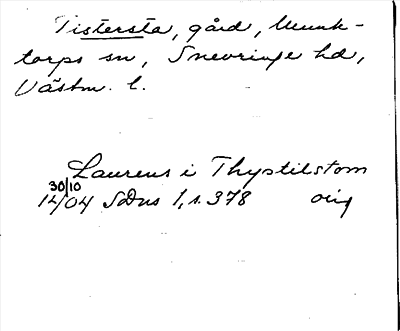 Tistersta, gård, Munk-
torps sn, Snevringe hd,
Västm. l.
Laurens i Thystilstom
30/10
1404 SDns 1, s. 378 orig